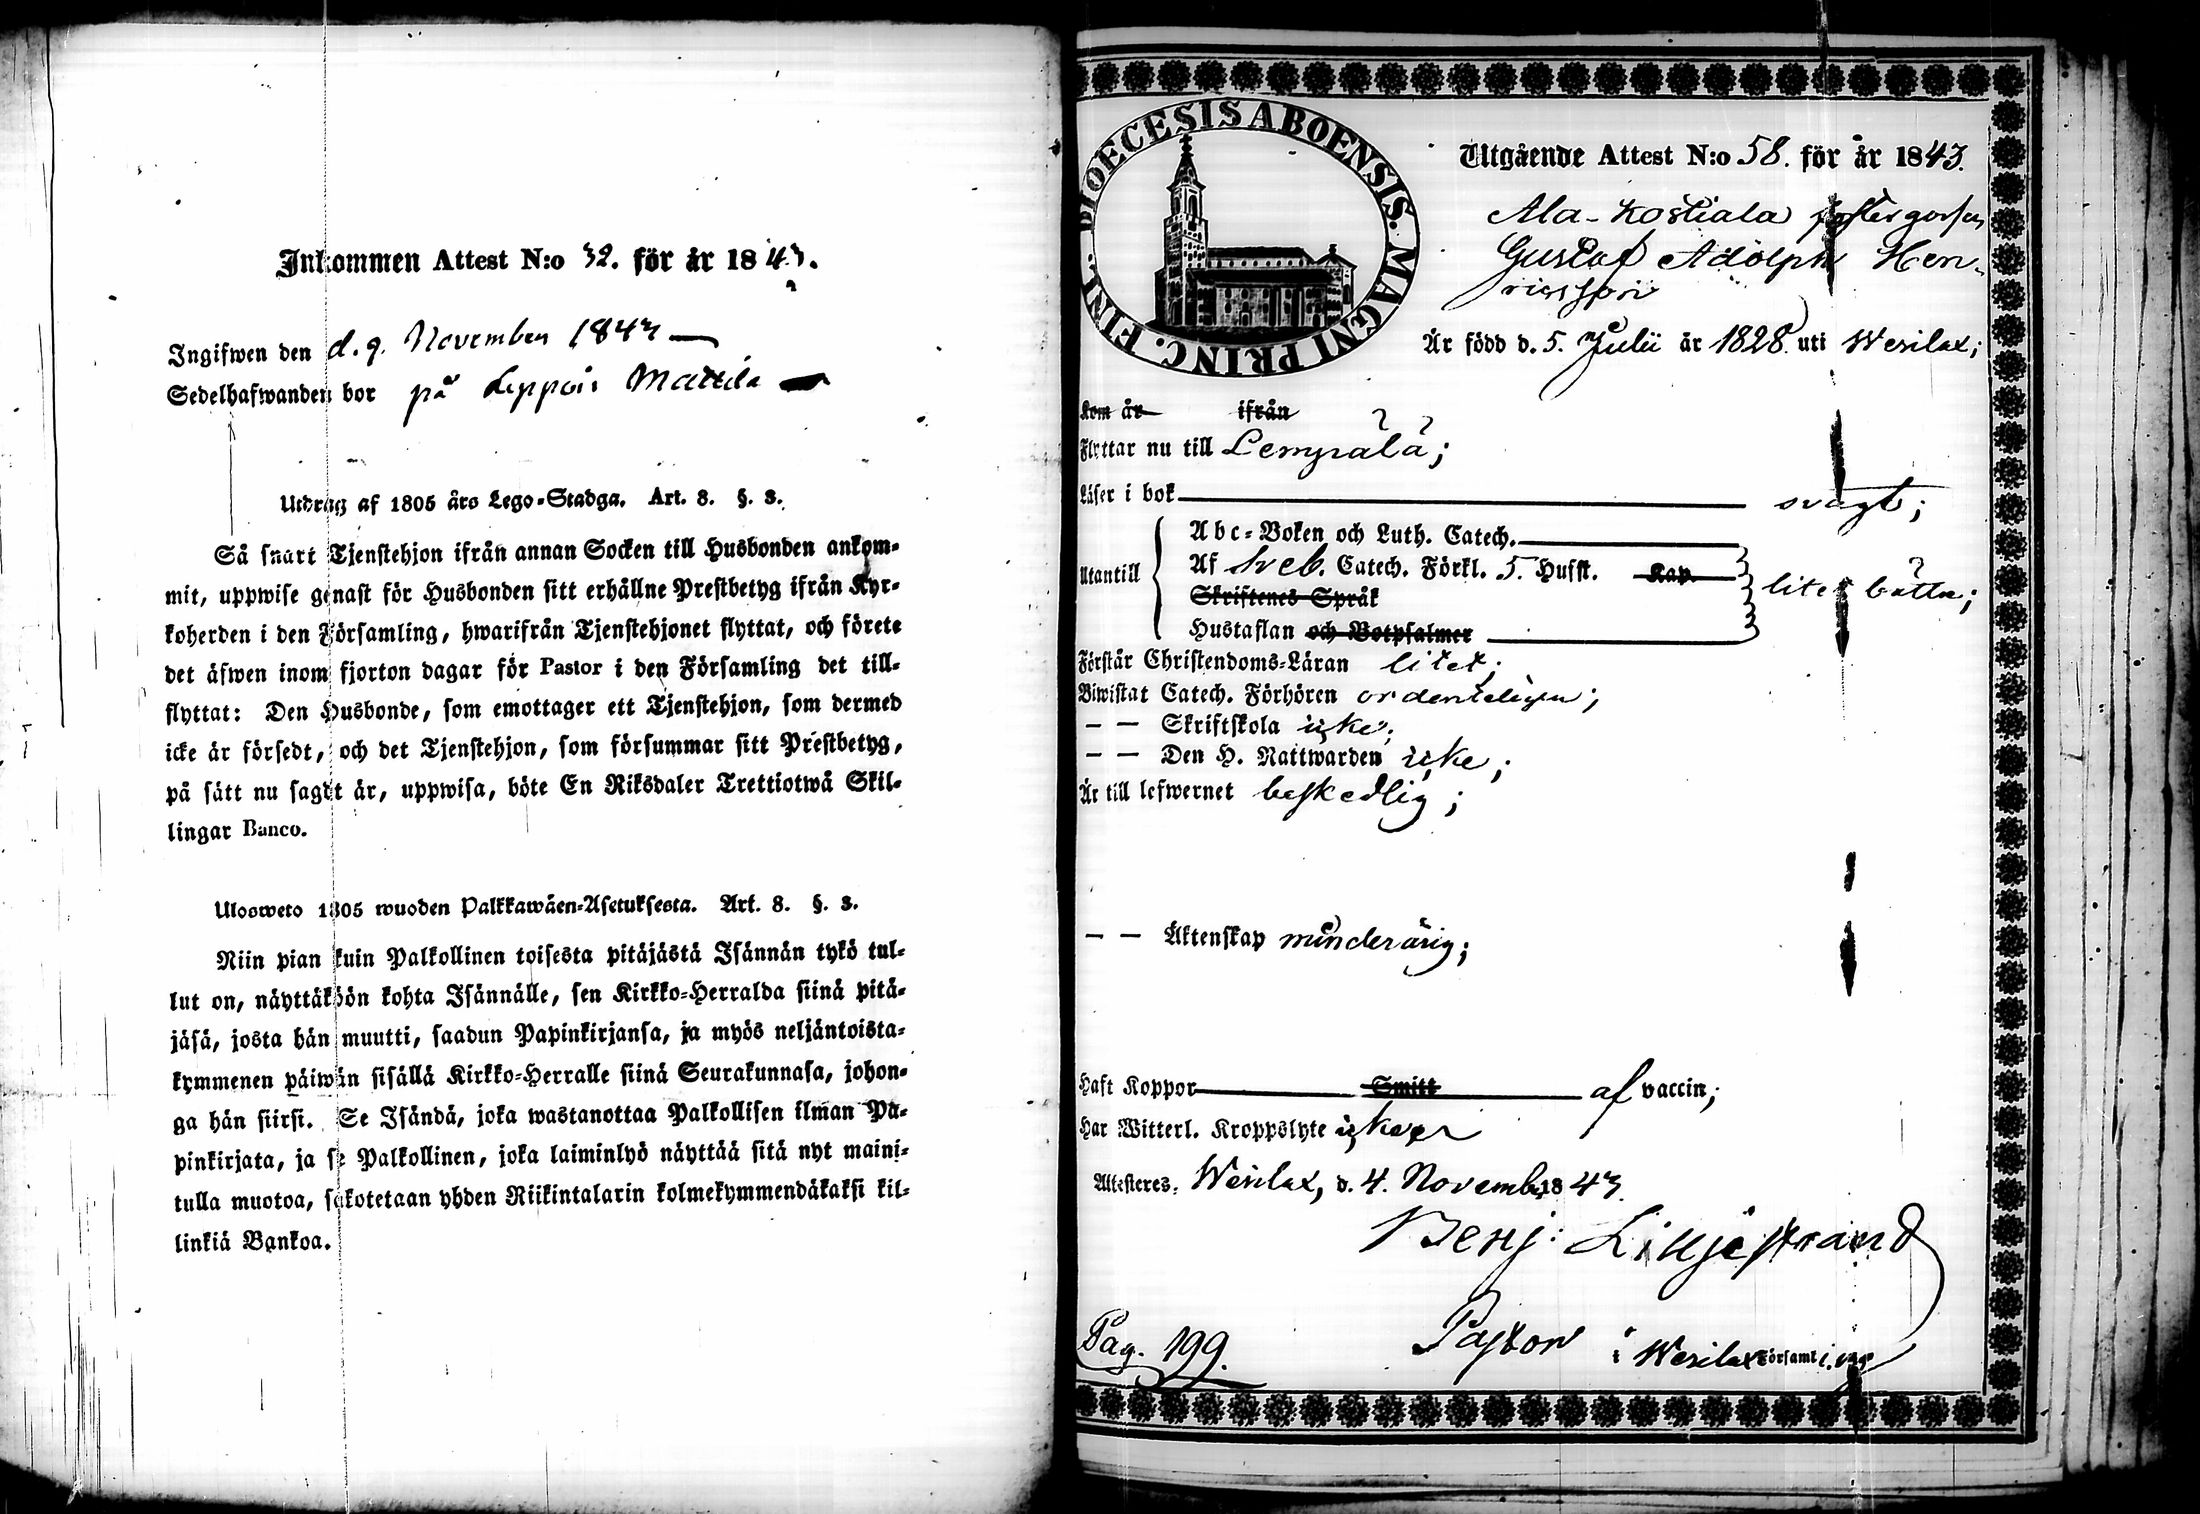 Inkommen Attest N:o 32. för år 1843.
Ingifwen den d. 9. November 1843
Sedelhafwanden bor på Leppois Mattila
Utdrag af 1805 års Lego-Stadga. Art. 8. §. 3.
Så snart Tjenstehjon ifrån annan Socken till Husbonden ankom-
mit, uppwise genast för Husbonden sitt erhållne Prestbetyg ifrån Kyr-
koherden i den Församling, hwarifrån Tjenstehjonet flyttat, och förete
det äfwen inom fjorton dagar för Pastor i den Församling det till-
flyttat: Den Husbonde, som emottager ett Tjenstehjon, som dermed
icke är försedt, och det Tjenstehjon, som försummar sitt Prestbetyg,
på sätt nu sagdt är, uppwisa, böte En Riksdaler Trettiotwå Skil-
lingar Banco.
Ulosweto 1805 wuoden Palkkawäen-Asetuksesta. Art. 8. §. 3.
Niin pian kuin Palkollinen toisesta pitäjästä Isännän tykö tul-
lut on, näyttäköön kohta Isännälle, sen Kirkko-Herralda siinä pitä-
jäsä, josta hän muutti, saadun Papinkirjansa, ja myös neljäntoista-
kymmenen päiwän sisällä Kirkko-Herralle siinä Seurakunnasa, johon-
ga hän siirsi. Se Isändä, joka wastanottaa Palkollisen ilman Pa-
pinkirjata, ja se Palkollinen, joka laiminlyö näyttää sitä nyt maini-
tulla muotoa, sakotetaan yhden Riikintalarin kolmekymmendäkaksi kil-
linkiä Bankoa.
DIOECESIS ABOENSIS. MAGNI PRINC. FINL.
Utgående Attest N:o 58. för år 1843.
Ala-Kostiala fostergossen
Gustaf Adolph Hen-
ricsson
Är född d. 5. Julii år 1828. uti Wesilax;
Kom år ifrån
Flyttar nu till Lempälä;
Läser i bok svagt;
Abc-Boken och Luth. Catech.
Utantill Af Sveb. Catech. Förkl. 5. Hufst. Kap. litet bättre;
Skriftenes Språk
Hustaflan och Botpsalmer
Förstår Christendoms-Läran litet;
Biwistat Catech. Förhören ordenteligen;
— — Skriftskola icke;
— — Den H. Nattwarden icke;
Är till lefwernet beskedlig;
— — Äktenskap minderårig;
Haft Koppor Smitt af vaccin;
Har Witterl. Kroppslyte icke
Attesteres, Wesilax, d. 4. November 1843.
Benj: Lilljestrand
Pag. 199.
Pastor i Wesilax Församling